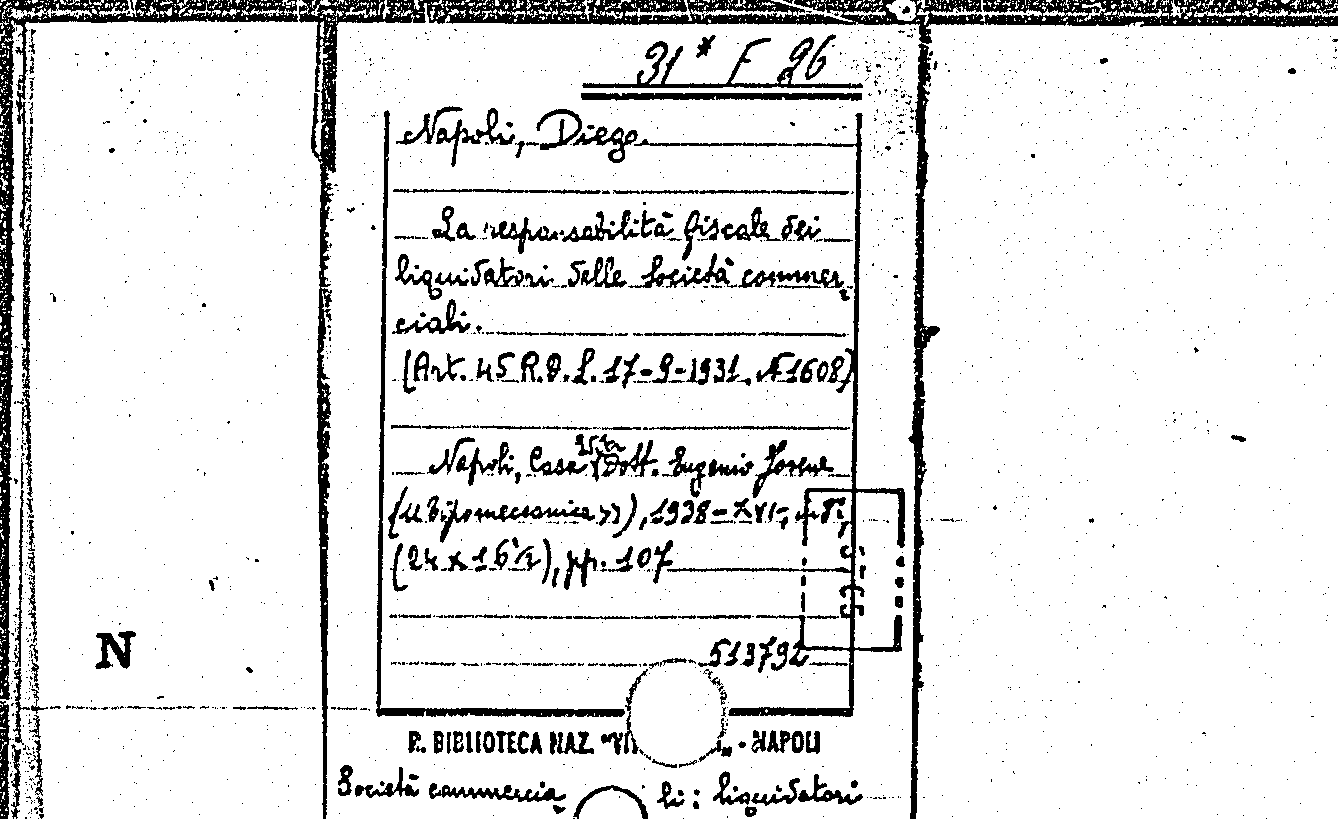 31* F 26
Napoli, Diego.
La responsabilità fiscale dei
liquidatori delle Società commer
ciali.
(Art. 45 R.D.L. 17-9-1931. N 1608)
Napoli, Casa Edta Dott. Eugenio Jovene
(« Tipomeccanica »), 1938-XVI, in 8°,
(24 x 16½), pp. 107
513792
N
R. BIBLIOTECA NAZ. - NAPOLI
Società commercia li: liquidatori